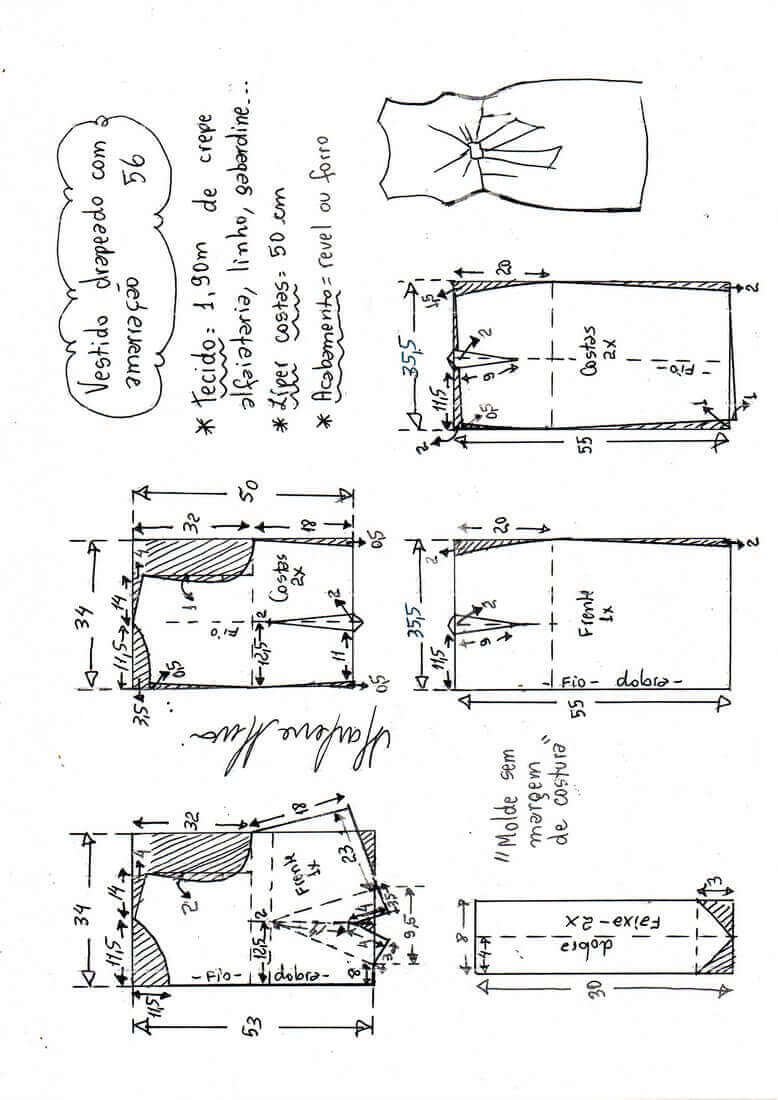 Vestido drapeado com
amarração 56
* Tecido = 1,90m de crepe
alfaiataria, linho, gabardine...
* Zíper costas = 50 cm
* Acabamento = revel ou forro
34
11,5
14
4
32
18
11,5
2
Frente
1x
12,5
2
23
53
-Fio- dobra-
8
9,5
3,5
4
4
3
34
11,5
14
4
32
50
18
3,5
0,5
1
Fio
Costas
2x
12,5
2
11
2
0,5
0,5
Marlene Mukai
8
4
dobra
Faixa-2x
3
30
"Molde sem
margem
de costura"
35,5
11,5
20
2
2
9
Frente
1x
55
-Fio- dobra-
2
35,5
11,5
20
1,5
2
0,5
2
9
Costas
2x
Fio
55
1
1
2